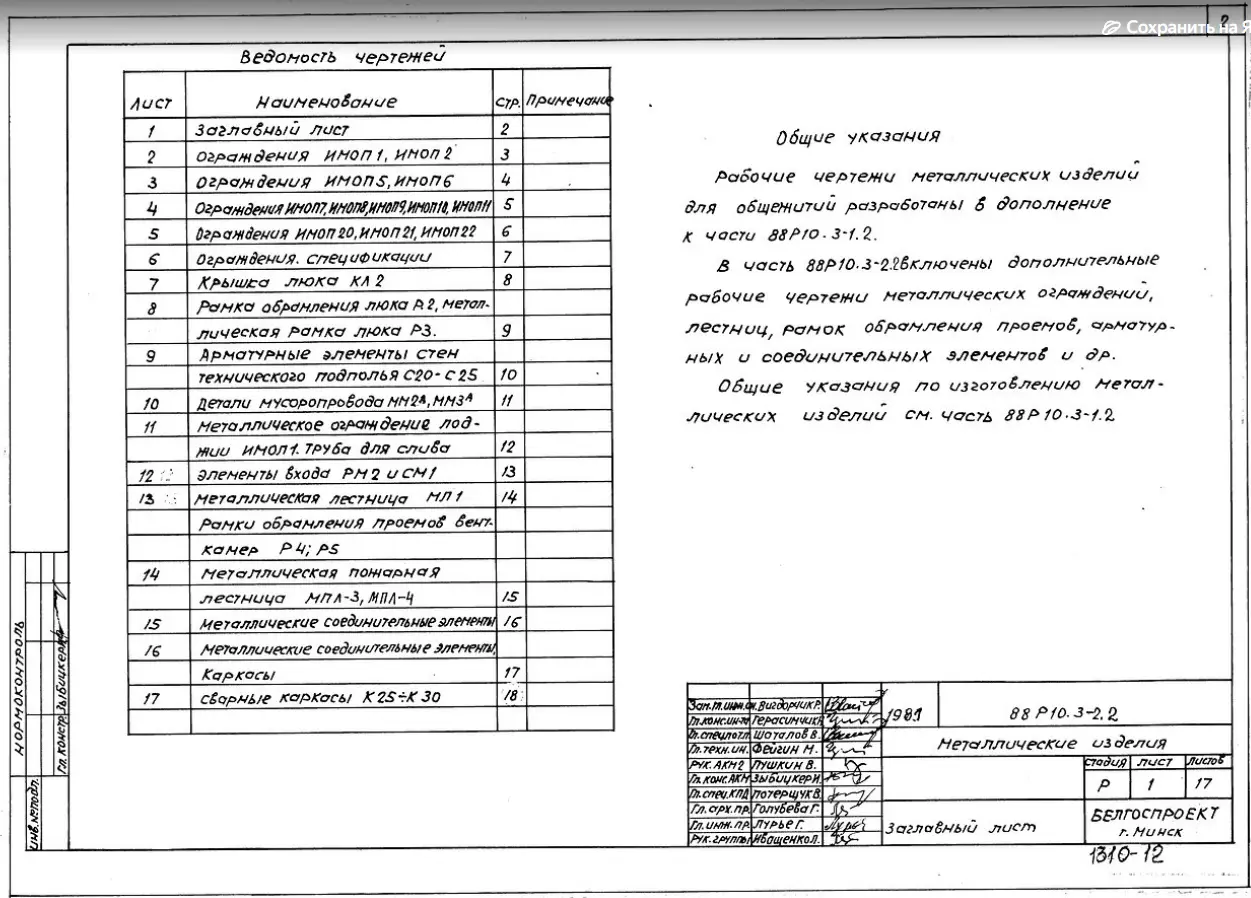 2
Сохранить на Я
Ведомость чертежей
Лист Наименование Стр. Примечание
1 Заглавный лист 2
2 Ограждения ИМОП1, ИМОП2 3
3 Ограждения ИМОП5, ИМОП6 4
4 Ограждения ИМОП7, ИМОП8, ИМОП9, ИМОП10, ИМОП11 5
5 Ограждения ИМОП20, ИМОП21, ИМОП22 6
6 Ограждения. спецификации 7
7 Крышка люка КЛ2 8
8 Рамка обрамления люка Р2, метал-
лическая рамка люка Р3. 9
9 Арматурные элементы стен
технического подполья С20-С25 10
10 Детали мусоропровода ММ2А, ММ3А 11
11 Металлическое ограждение лод-
жии ИМОЛ1. Труба для слива 12
12 элементы входа РМ2 и СМ1 13
13 Металлическая лестница МЛ1 14
Рамки обрамления проемов вент.
камер Р4; Р5
14 Металлическая пожарная
лестница МПЛ-3, МПЛ-4 15
15 Металлические соединительные элементы 16
16 Металлические соединительные элементы,
Каркасы 17
17 сварные каркасы К25÷К30 18
Общие указания
Рабочие чертежи металлических изделий
для общежитий разработаны в дополнение
к части 88Р10.3-1.2.
В часть 88Р10.3-2.2 включены дополнительные
рабочие чертежи металлических ограждений,
лестниц, рамок обрамления проемов, арматур-
ных и соединительных элементов и др.
Общие указания по изготовлению метал-
лических изделий см. часть 88Р10.3-1.2
Нормоконтроль
Гл. констр. Зыбицкер
Инв.№подл.
Зам.гл.инж.ин. Вигдорчик Р.
Гл.конс.ин-та Герасимчик
Гл.спец.потл. Шаталов В.
Гл.техн.ин. Фейгин М.
Рук.АКМ2 Пушкин В.
Гл.конс.АКМ Зыбицкер И.
Гл.спец.КПД Потерщук В.
Гл.арх.пр. Голубева Г.
Гл.инж.пр. Лурье Г.
Рук.группы Иващенко Л.
1981 88Р10.3-2.2
Металлические изделия
стадия лист листов
Р 1 17
Заглавный лист
БЕЛГОСПРОЕКТ
г. Минск
1310-12